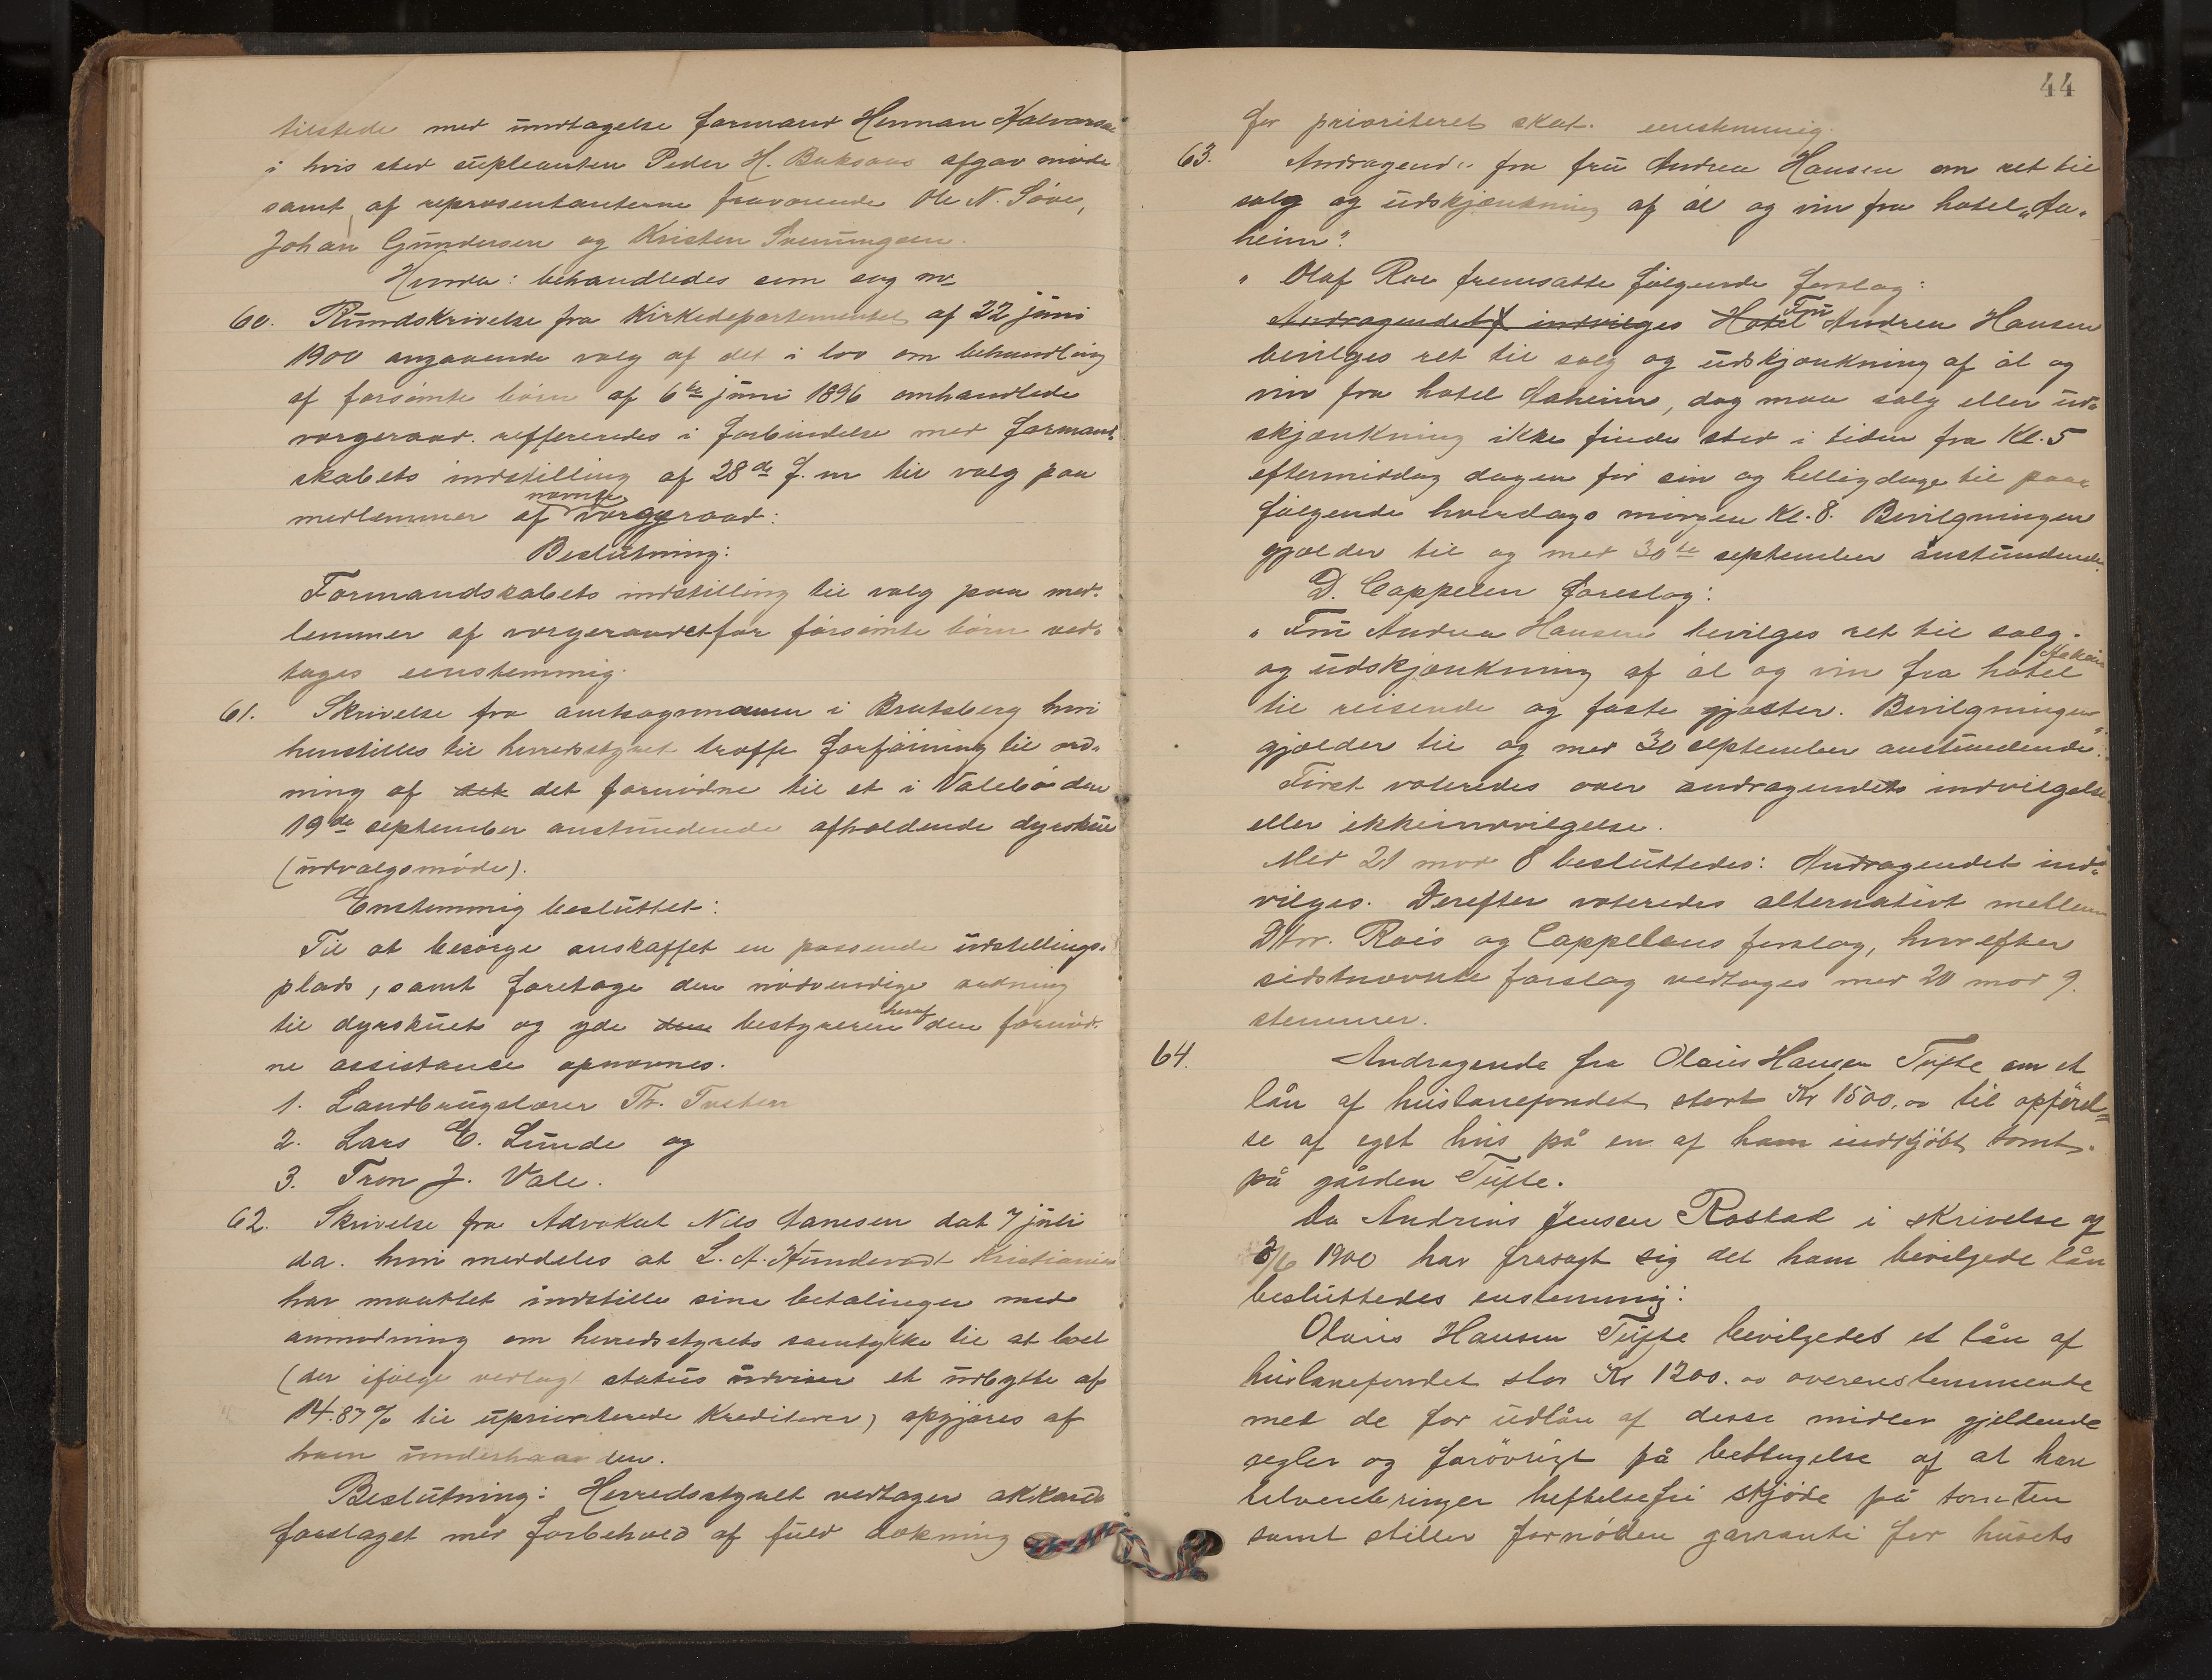 tilstede med undtagelse formand Herman Halvorsen
i hvis sted supleanten Peder H. Buksaas afgav møde
samt af repræsentanterne fraværende Ole N. Søve,
Johan Gundersen og Kristen Svenungsen.
Herunder: behandledes som sag no
60. Rundskrivelse fra Kirkedepartementet af 22 juni
1900 angaaende valg af det i lov om behandling
af forsømte børn af 6te juni 1896 omhandlede
værgeraad. reffereredes i forbindelse med formand
skabets indstilling af 28de f.m til valg paa
medlemmer af nævnte værgeraad:
Beslutning:
Formandskabets indstilling til valg paa med-
lemmer af værgeraadet for forsømte børn ved-
tages eenstemmig.
61. Skrivelse fra amtsagronomen i Bratsberg hvori
henstilles til herredsstyret træffe forføining til ord-
ning af det det fornødne til et i Valebø den
19de september anstundende afholdende dyrskue
(udvalgsmøde).
Enstemmig besluttet:
Til at besørge anskaffet en passende udstillings-
plads, samt foretage den nødvendige ordning
til dyrskuet og yde den bestyreren heraf den fornød-
ne assistance opnævnes.
1. Landbrugslærer Th. Tveten
2. Lars E. Lunde og
3. Tron J. Vale.
62. Skrivelse fra Advokat Nils Hanesen dat 7 juli
d.a. hvori meddeles at L. A. Hundevadt Kristiania
har maattet indstille sine betalinger med
anmodning om herredsstyrets samtykke til at boet
(der ifølge vedlagt status udviser et udbytte af
14.87% til upriorterede Kreditorer) opgjøres af
ham underhaanden.
Beslutning: Herredsstyret vedtager akkords
forslaget med forbehold af fuld dækning
44
for prioriteret skat. eenstemmig.
63. Andragende fra fru Andrea Hansen om ret til
salg og udskjænkning af øl og vin fra hotel „Aa-
heim".
„ Olaf Roe fremsatte følgende forslag:
Andragendet indvilges Hotel Fru Andrea Hansen
bevilges ret til salg og udskjænkning af øl og
vin fra hotel Aaheim, dog maa salg eller ud-
skjænkning ikke finde sted i tiden fra Kl. 5
eftermiddag dagen før søn og helligdage til paa
følgende hverdags morgen Kl. 8. Bevilgningen
gjælder til og med 30te september anstundende.
D. Cappelen foreslog:
„ Fru Andrea Hansen bevilges ret til salg
og udskjænkning af øl og vin fra hotel Aaheim
til reisende og faste gjæster. Bevilgningen
gjælder til og med 30 september anstundende."
Først voteredes over andragendets indvilgelse
eller ikkeindvilgelse.
Med 21 mod 8 besluttedes: Andragendet ind-
vilges. Derefter voteredes alternativt mellem
DHrr. Roes og Cappelens forslag, hvorefter
sidstnævnte forslag vedtages med 20 mod 9.
stemmer.
64. Andragende fra Olaus Hansen Tufte om et
lån af huslånefondet stort Kr 1500.00 til opførel=
se af eget hus på en af ham indkjøbt tomt.
på gården Tufte.
Da Andreas Jensen Rostad i skrivelse af
3/6 1900 har frasagt sig det ham bevilgede lån
besluttedes enstemmig:
Olaus Hansen Tufte bevilgedes et lån af
huslånefondet stor Kr 1200.00 overensstemmende
met de for udlån af disse midler gjeldende
regler og forøvrigt på bettingelse af at han
tilveiebringer heftelsefri skjøde på tomten
samt stiller fornøden garranti for husets